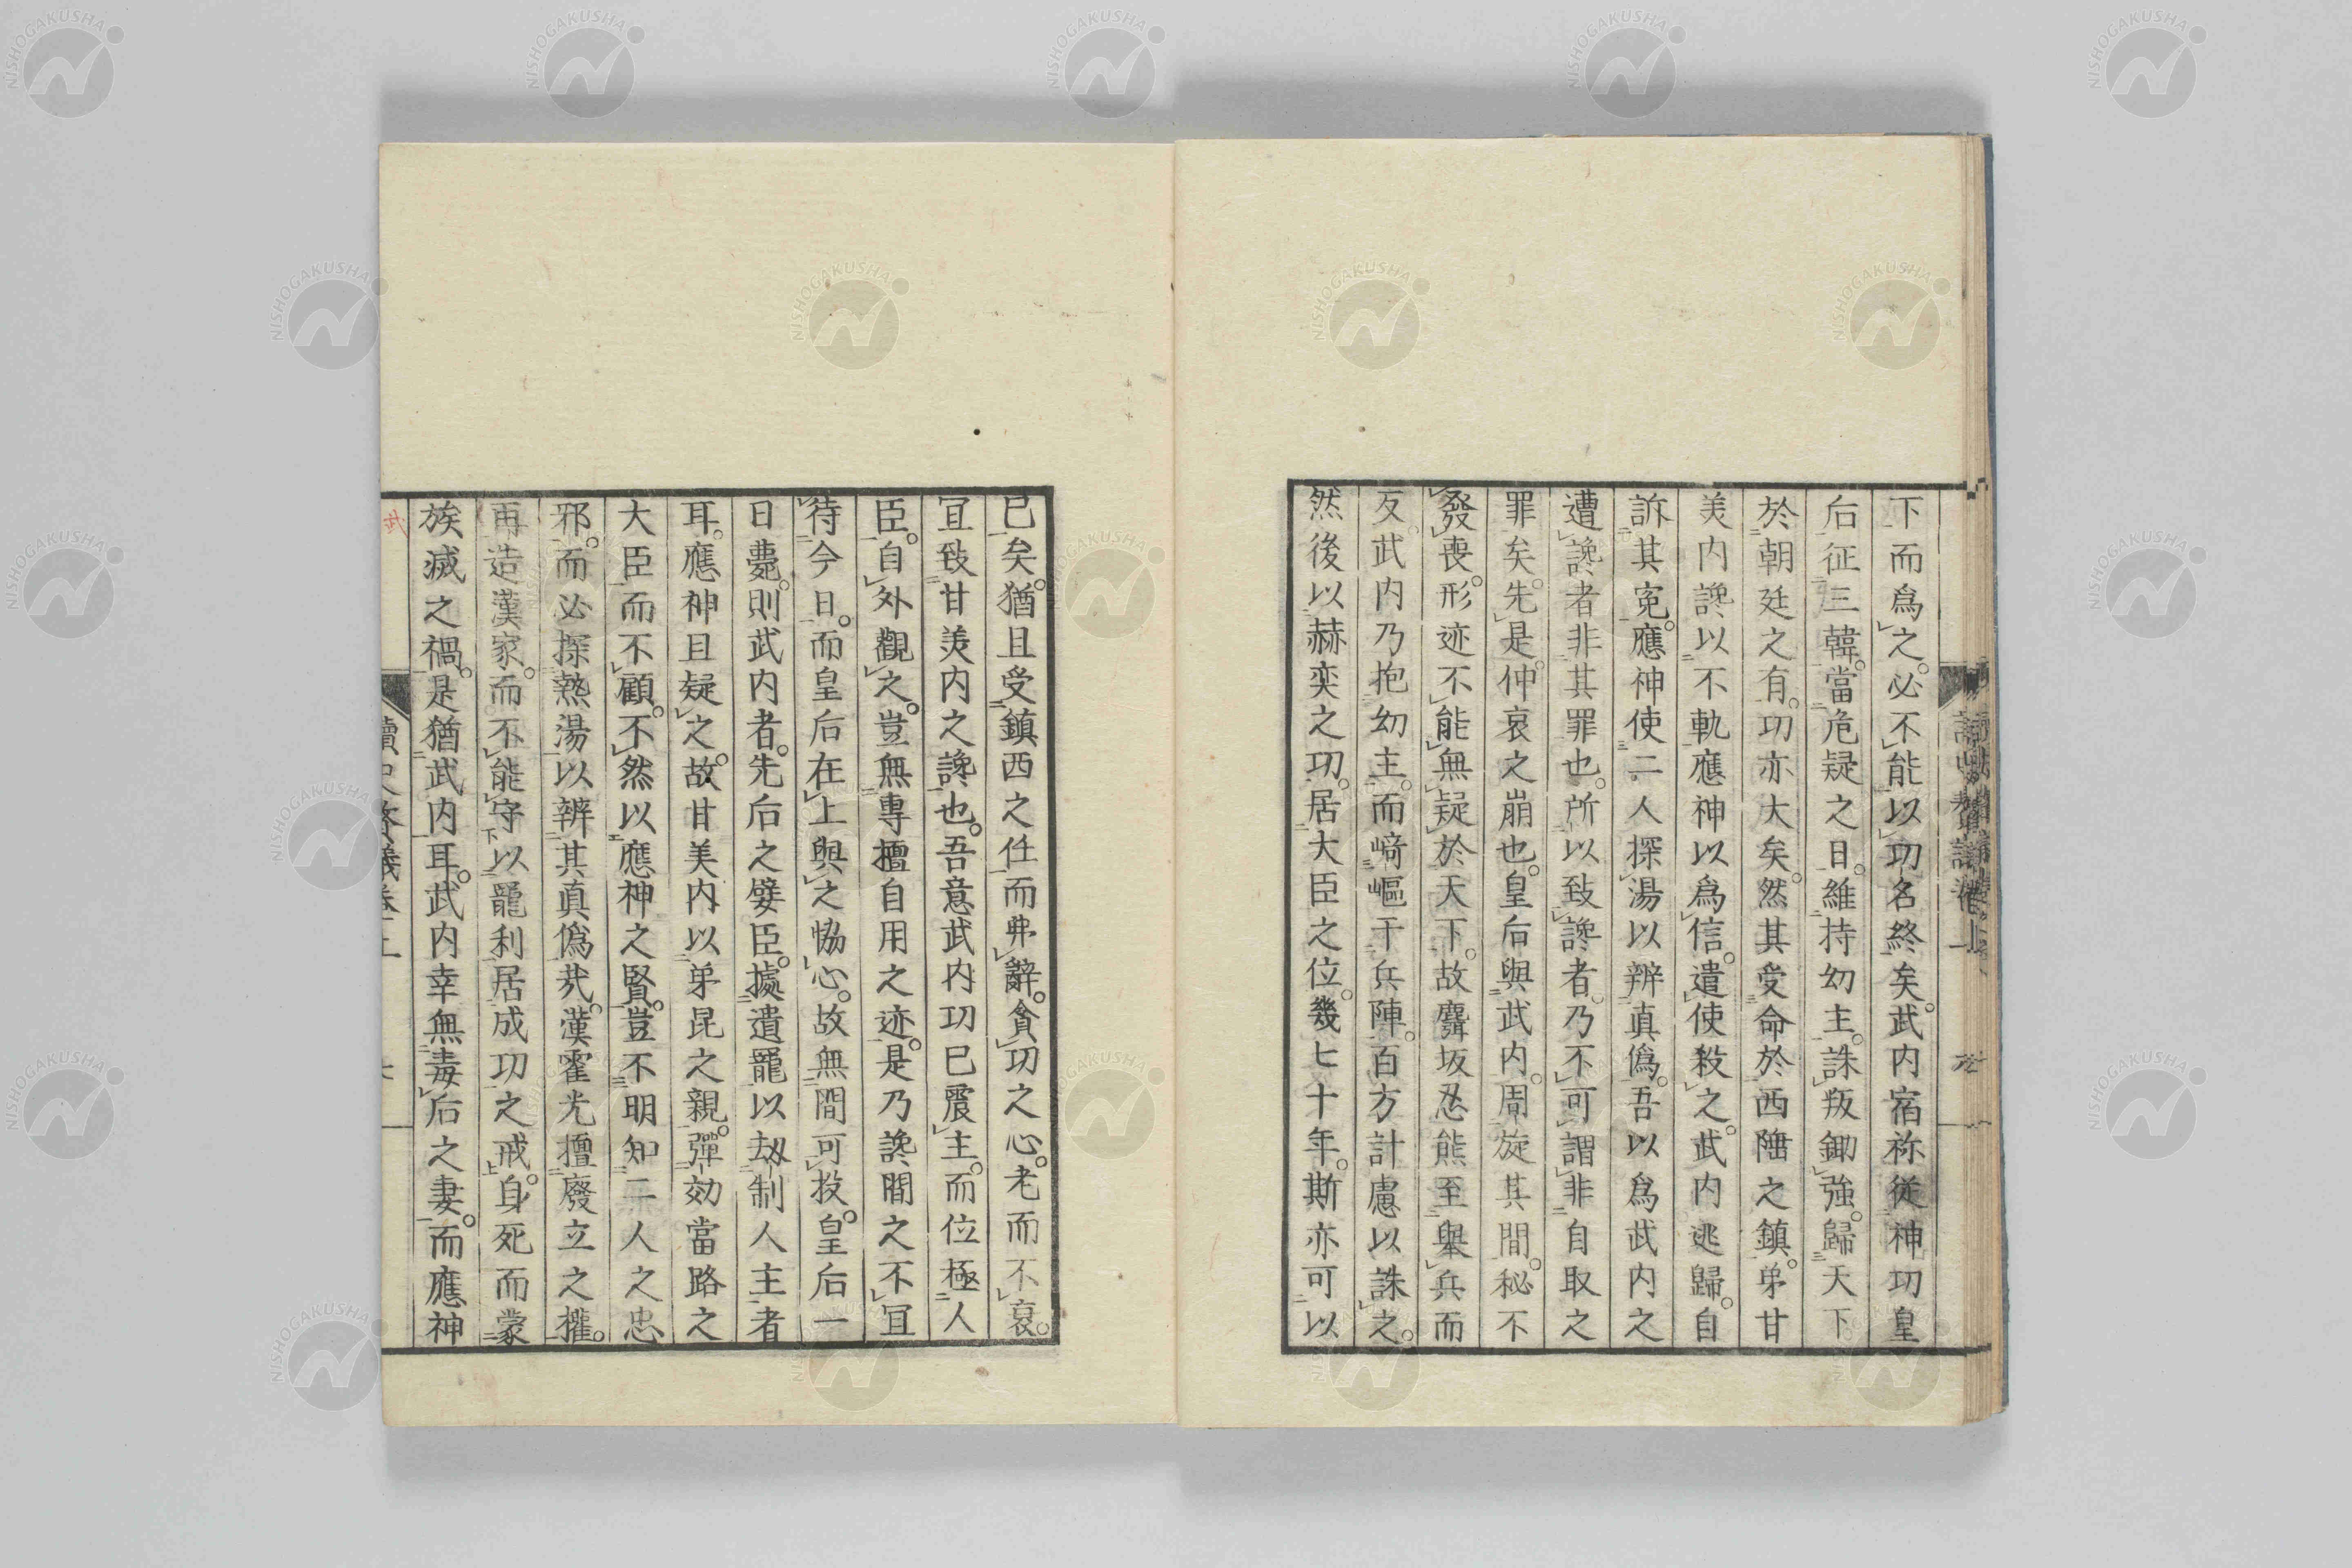 下而爲之。必不能以功名終矣。武内宿祢從神功皇
后征三韓。當危疑之日。維持幼主。誅叛鋤強。歸天下
於朝廷之有。功亦大矣。然其受命於西陲之鎮。弟甘
美内讒以不軌應神以爲信。遣使殺之。武内逃歸。自
訴其寃。應神使二人探湯以辨眞僞。吾以爲武内之
遭讒者非其罪也。所以致讒者。乃不可謂非自取之
罪矣。先是。仲哀之崩也。皇后與武内。周旋其間。秘不
發喪。形迹不能無疑於天下。故麛坂忍熊至舉兵而
反。武内乃抱幼主。而﨑嶇干兵陣。百方計慮以誅之。
然後以赫奕之功。居大臣之位。幾七十年。斯亦可以
已矣。猶且受鎮西之任而弗辭。貪功之心。老而不衰。
宜致甘美内之讒也。吾意武内功已震主。而位極人
臣。自外觀之。豈無專擅自用之迹。是乃讒間之不宜
待今日。而皇后在上與之恊心。故無間可投。皇后一
日薨。則武内者。先后之嬖臣。據遺寵以刼制人主者
耳。應神且疑之。故甘美内以弟昆之親。彈効當路之
大臣而不顧。不然以應神之賢。豈不明知二人之忠
邪。而必探熱湯以辨其眞僞㢤。漢霍光擅廢立之權。
再造漢家。而不能守以寵利居成功之戒。身死而蒙
族滅之禍。是猶武内耳。武内幸無毒后之妻。而應神
讀史贅議卷上